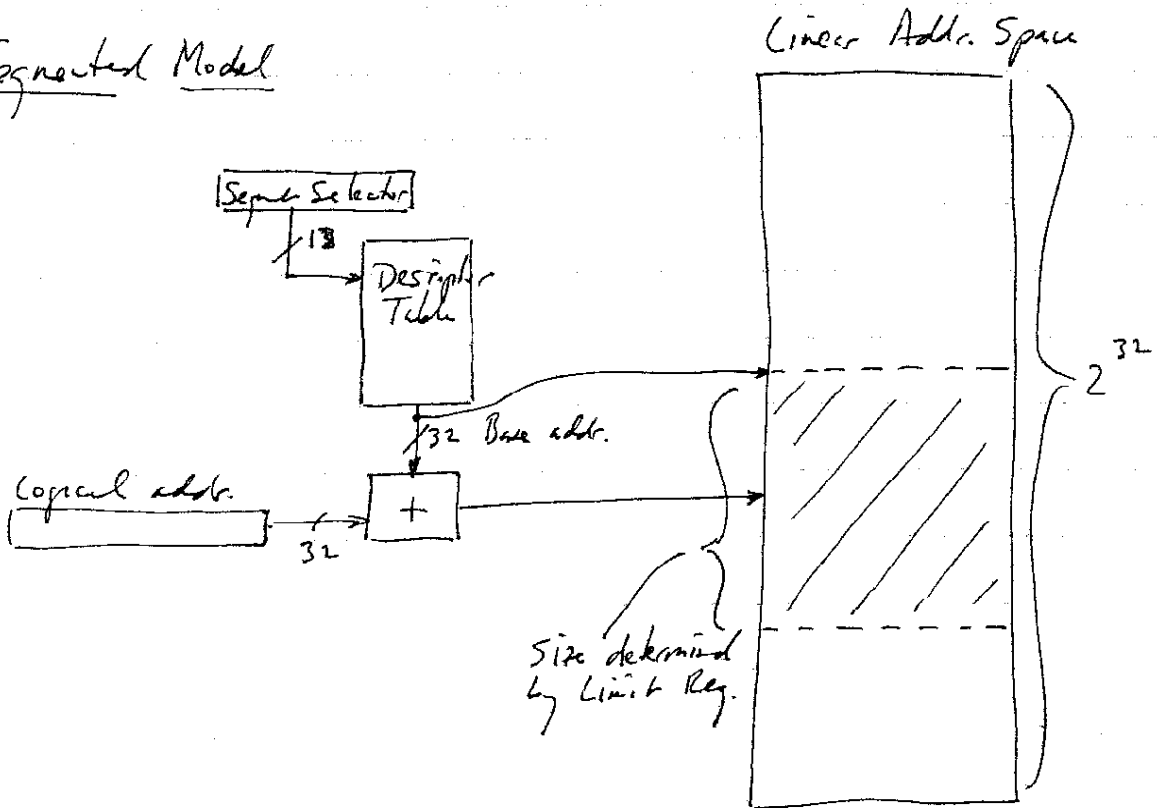 Segmented Model
Linear Addr. Space
Segment Selector
13
Descriptor
Table
32 Base addr.
2^32
Logical addr.
+
32
Size determind
by Limit Reg.